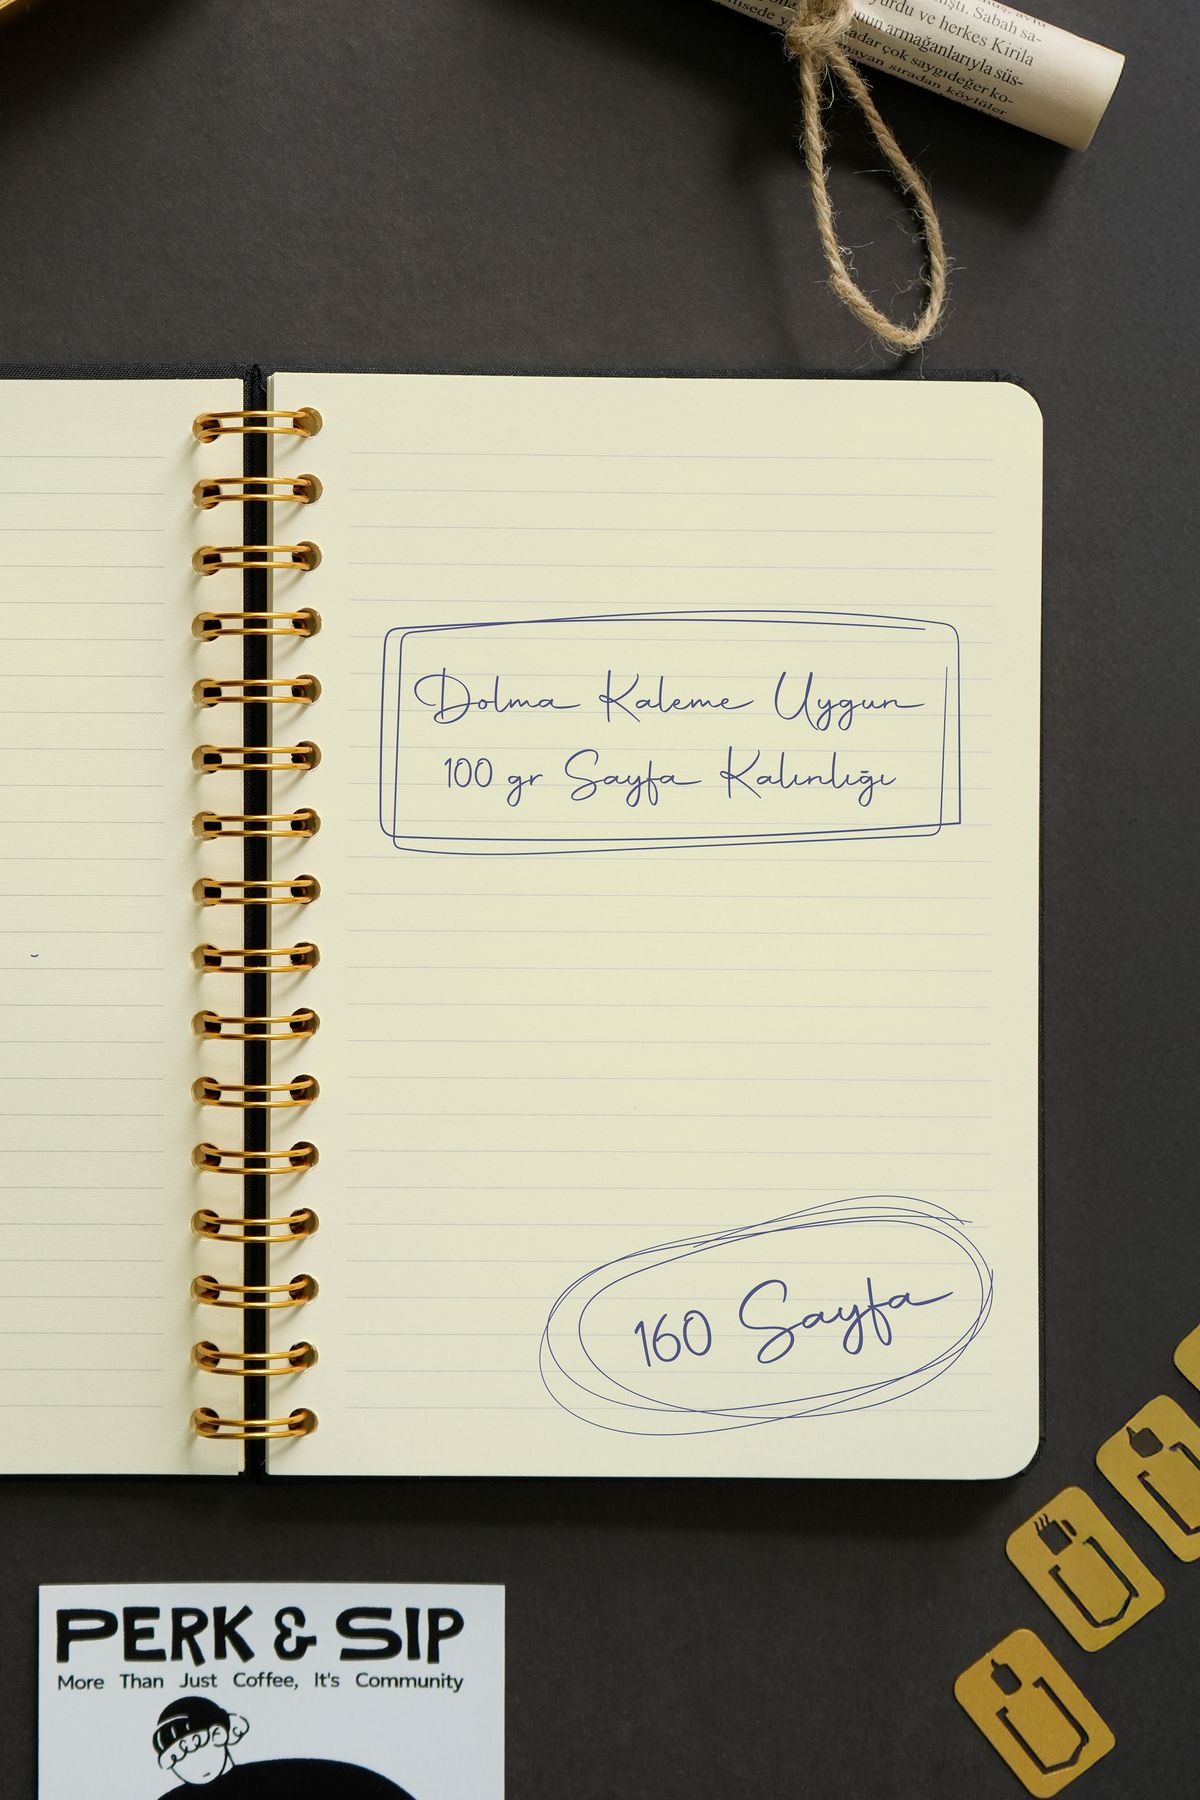 nuştı. Sabah sa-
yurdu ve herkes Kirila
onun armağanlarıyla süs-
adar çok saygıdeğer ko-
mayan sıradan köylüler
Dolma Kaleme Uygun
100 gr Sayfa Kalınlığı
160 Sayfa
PERK & SIP
More Than Just Coffee, It's Community